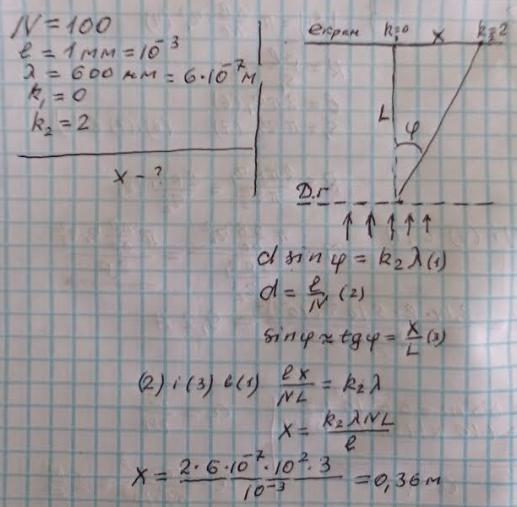 N = 100
l = 1 мм = 10⁻³
λ = 600 нм = 6·10⁻⁷ м
k₁ = 0
k₂ = 2
x - ?
екран k=0 x k=2
L
φ
Д.г
d sin φ = k₂ λ (1)
d = l/N (2)
sin φ ≈ tg φ = x/L (3)
(2) і (3) в (1) lx/NL = k₂ λ
x = k₂ λ N L/l
x = 2·6·10⁻⁷·10²·3/10⁻³ = 0,36 м